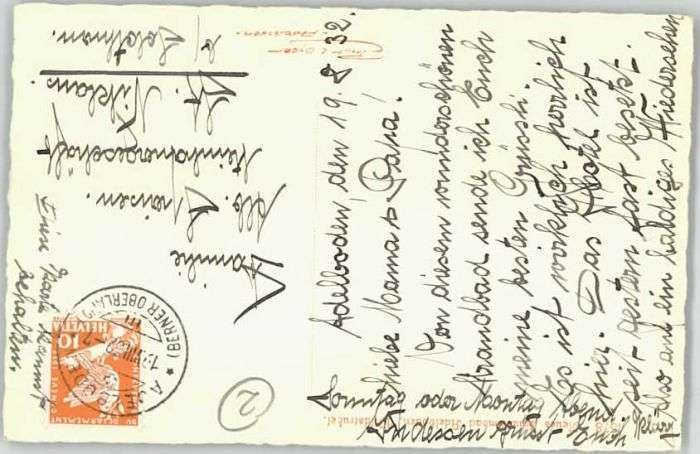 Adelboden, den 19. 8. 32.
Liebe Mama & Papa!
Von diesem wunderschönen
Strandbad sende ich Euch
meine besten Grüessli.
Es ist wirklich herrlich
hier. Das Hotel ist
seit gestern fast besetzt.
Also auf ein baldiges Wiedersehen
Sonntag oder Montag Abend.
Indessen grüsst Euch Klärly
Familie
Alb.
Steinhauergeschäft
St. Niklaus.
b/ Solothurn.
Eure Karte
behalten.
2
HELVETIA
10
(BERNER OBERLAND)